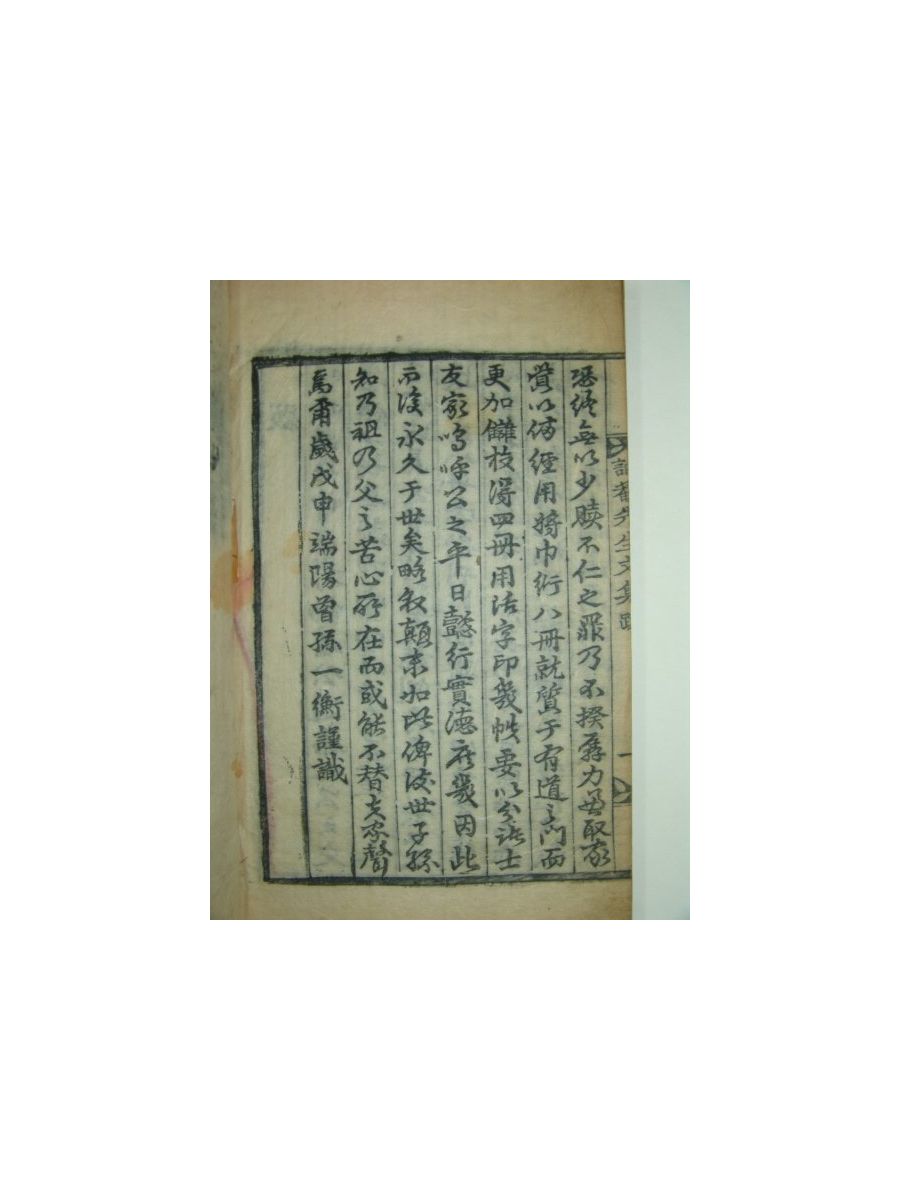 恐終無以少贖不仁之罪乃不揆孱力畧取家
貲以備經用將巾衍八冊就質于有道之門而
更加讎校得四冊用活字印幾帙要以分諸士
友家嗚呼公之平日懿行實德庶幾因此
而後永久于世矣略叙顚末如此俾後世子孫
知乃祖乃父之苦心所在而或能不替先家聲
焉爾歲戊申端陽曾孫一衡謹識
訥菴先生文集跋
一